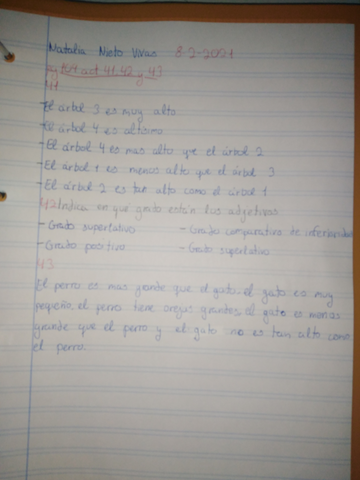 Natalia Nieto Vivas 8-2-2021
pg 104 act 41. 42 y 43
41
-El árbol 3 es muy alto
-El árbol 4 es altísimo
-El árbol 4 es mas alto que el árbol 2
-El árbol 1 es menos alto que el árbol 3
-El árbol 2 es tan alto como el árbol 1
42 Indica en que grado están los adjetivos
-Grado superlativo - Grado comparativo de inferioridad
-Grado positivo - Grado superlativo
43
El perro es mas grande que el gato, el gato es muy
pequeño, el perro tiene orejas grandes, el gato es menos
grande que el perro y el gato no es tan alto como
el perro.